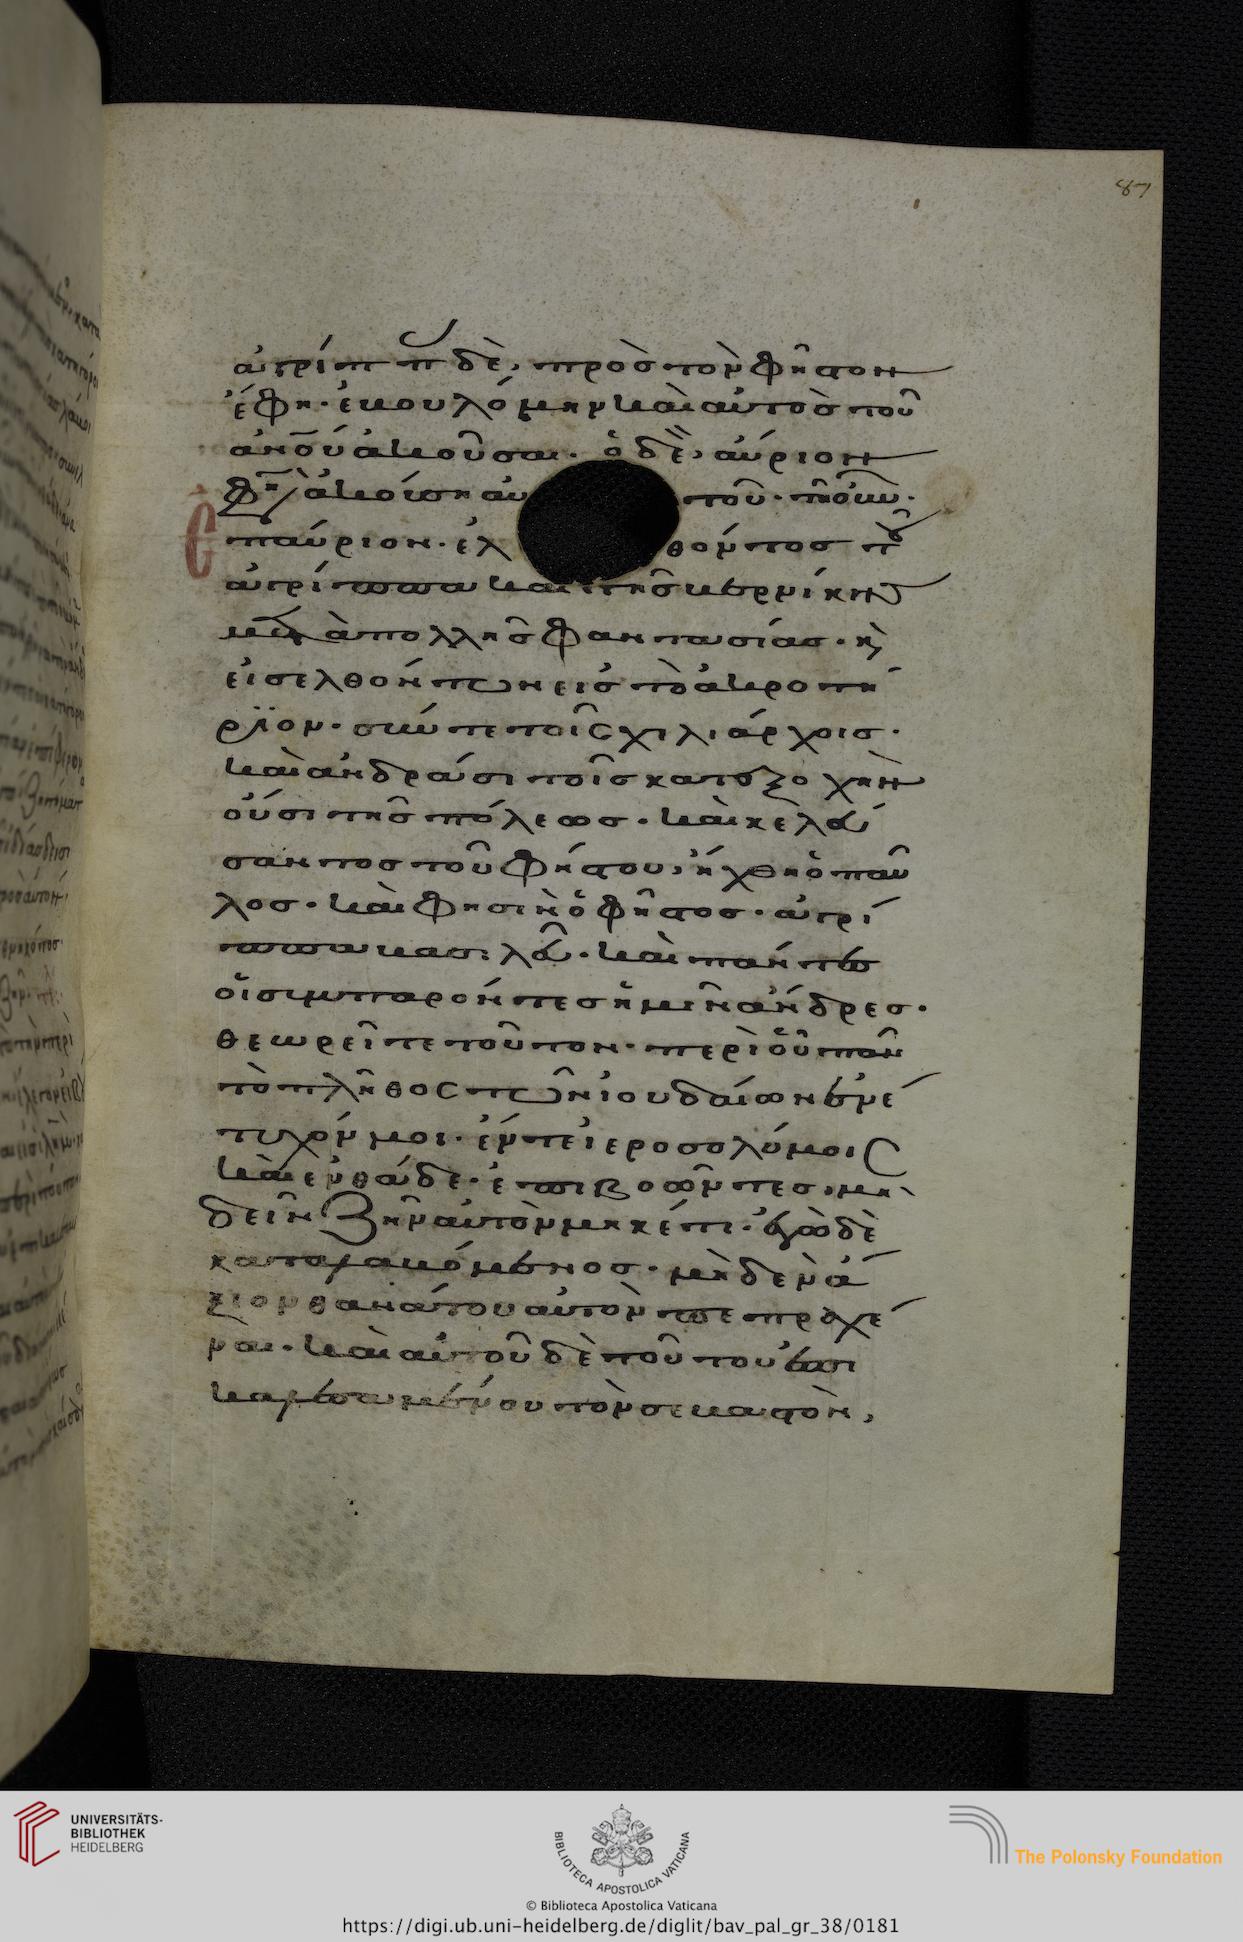 87
ἀγρίππ δὲ, πρὸς τὸν φῆστον
ἔφη· ἐβουλόμην καὶ αὐτὸς τοῦ
ἀνου ἀκοῦσαι· ὁ δὲ, αὔριον
φη ἀκούση αὐτοῦ· τῆ οὖν·
ἐπαύριον· ἐλθόντος τ
ἀγρίππα καὶ τῆς βερνίκης
μετὰ πολλῆς φαντασίας· κ
εἰσελθόντων εἰς τὸ ἀκροτή
ριον· σύν τε τοῖς χιλιάρχοις·
καὶ ἀνδράσι τοῖς κατεξοχὴν
οὖσι τῆς πόλεως· καὶ κελεύ
σαντος τοῦ φήστου, ἤχθη ὁ παῦ
λος· καὶ φησιν ὁ φῆστος· ἀγρί
ππα βασιλεῦ· καὶ πάντες
οἱ συμπαρόντες ἡμῖν ἄνδρες·
θεωρεῖτε τοῦτον· περὶ οὗ πᾶν
τὸ πλῆθος τῶν ἰουδαίων ἐνέ
τυχόν μοι· ἔν τε ἱεροσολύμοις
καὶ ἐνθάδε· ἐπιβοῶντες, μὴ
δεῖν ζῆν αὐτὸν μηκέτι· ἐγὼ δὲ
καταλαβόμενος· μηδὲν ἄ
ξιον θανάτου αὐτὸν πεπραχέ
ναι· καὶ αὐτοῦ δὲ τούτου ἐπι
καλεσαμένου τὸν σεβαστὸν,
UNIVERSITÄTS-
BIBLIOTHEK
HEIDELBERG
BIBLIOTECA APOSTOLICA VATICANA
The Polonsky Foundation
© Biblioteca Apostolica Vaticana
https://digi.ub.uni-heidelberg.de/diglit/bav_pal_gr_38/0181